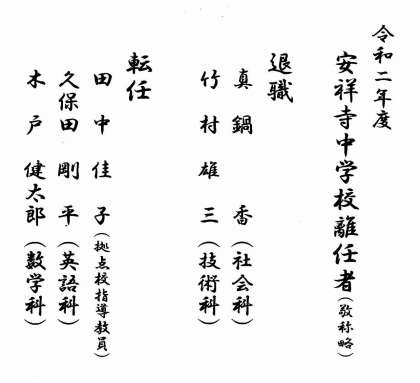 令和二年度
安祥寺中学校離任者(敬称略)
退職
真鍋 香(社会科)
竹村雄三(技術科)
転任
田中佳子(拠点校指導教員)
久保田剛平(英語科)
木戸健太郎(数学科)